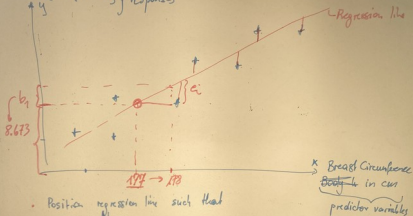 y
Regression line
b₁
eᵢ
8.673
177 → 178
x Breast Circumference
in cm
predictor variable
• Position regression line such that